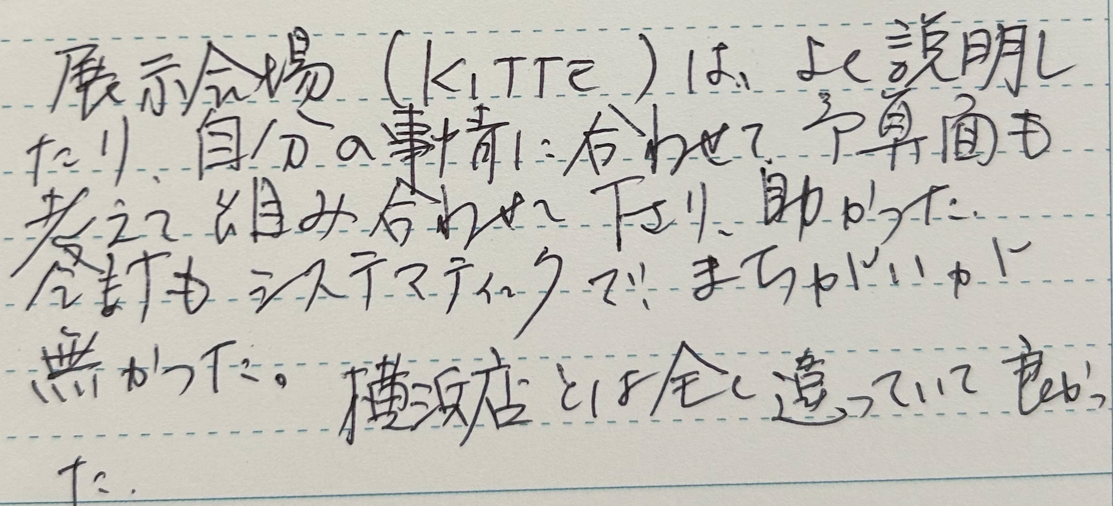 展示会場（KITTE）は、よく説明し
たり、自分の事情に合わせて、予算面も
考えて組み合わせて下さり、助かった。
会計もシステマティックで、まちがいが
無かった。横浜店とは全く違っていて良かっ
た。